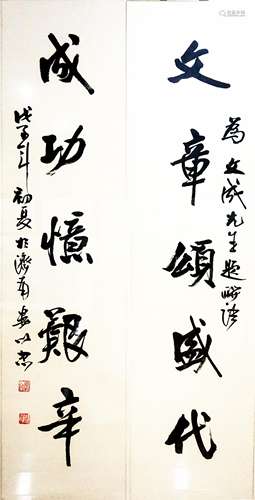 文章頌盛代
為文成先生題聯語
成功憶艱辛
戊子年初夏於濟南婁以忠